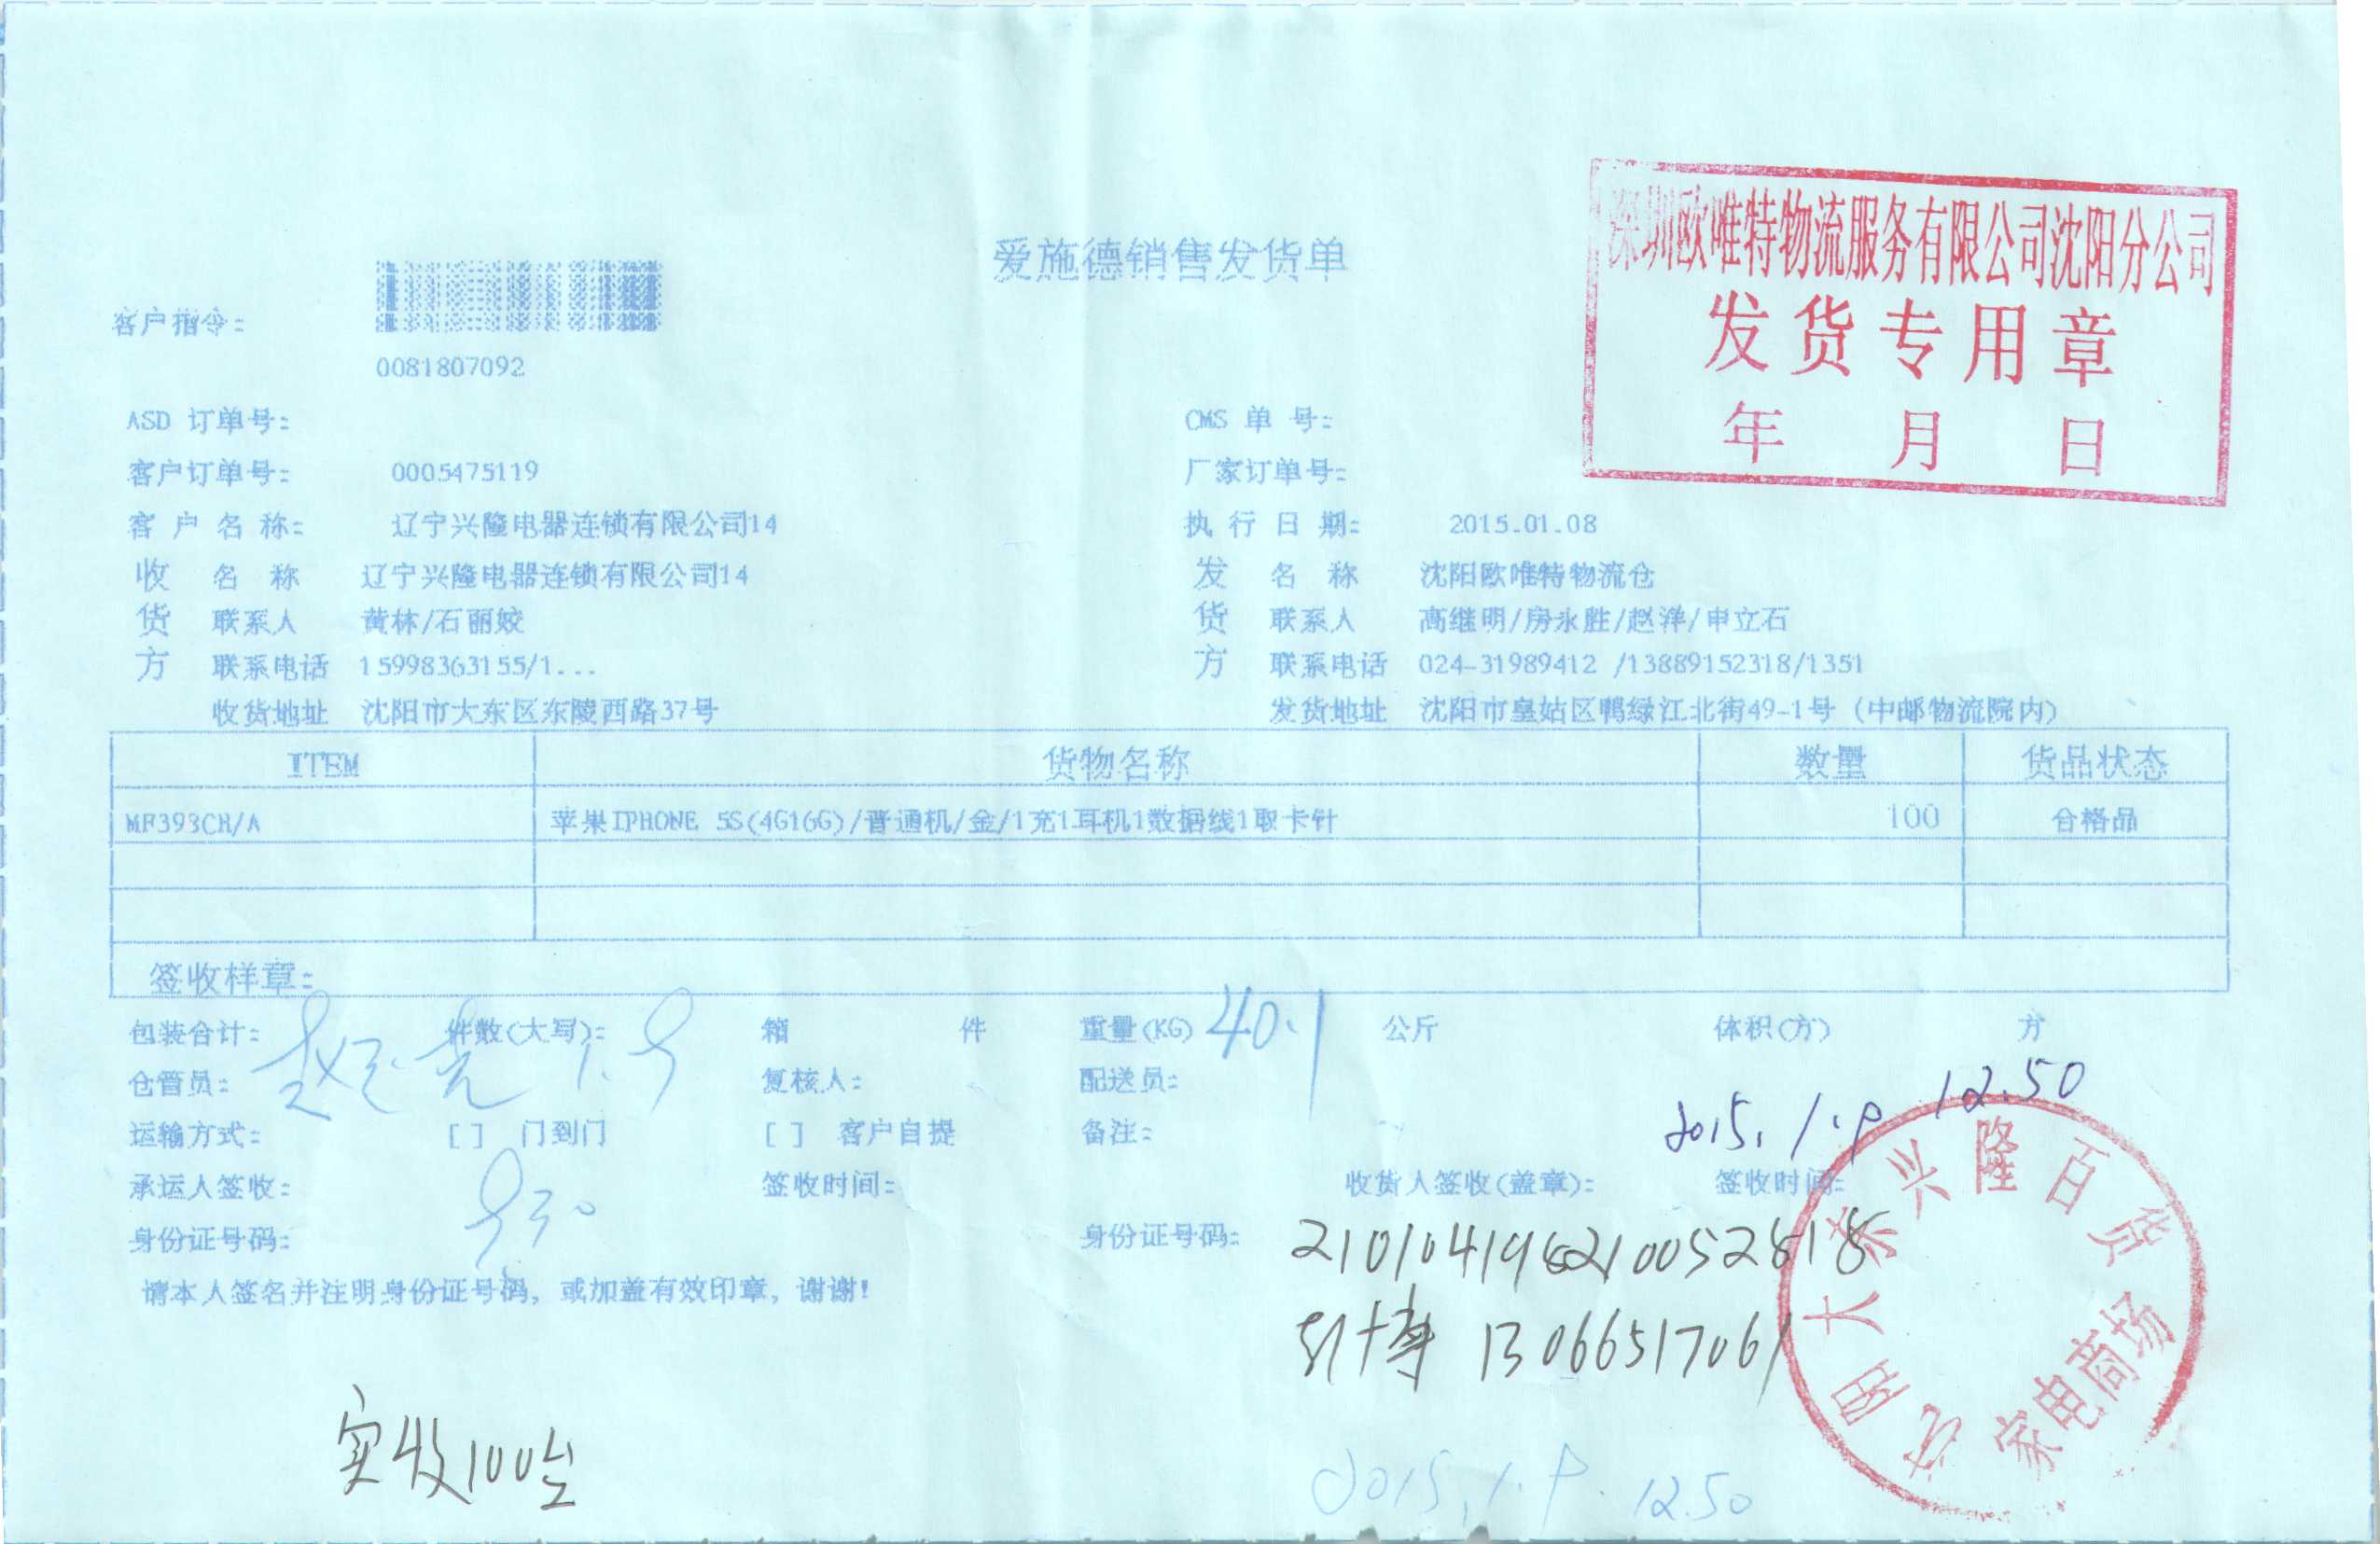 爱施德销售发货单
深圳欧唯特物流服务有限公司沈阳分公司
发货专用章
年 月 日
客户指令:
0081807092
ASD 订单号: CMS 单 号:
客户订单号: 0005475119 厂家订单号:
客 户 名 称: 辽宁兴隆电器连锁有限公司14 执 行 日 期: 2015.01.08
收 名 称 辽宁兴隆电器连锁有限公司14 发 名 称 沈阳欧唯特物流仓
货 联系人 黄林/石丽姣 货 联系人 高继明/房永胜/赵洋/申立石
方 联系电话 15998363155/1... 方 联系电话 024-31989412 /13889152318/1351
收货地址 沈阳市大东区东陵西路37号 发货地址 沈阳市皇姑区鸭绿江北街49-1号 (中邮物流院内)
ITEM 货物名称 数量 货品状态
MF393CH/A 苹果IPHONE 5S(4G16G)/普通机/金/1充1耳机1数据线1取卡针 100 合格品
签收样章:
包装合计: 件数(大写): 箱 件 重量(KG) 40.1 公斤 体积(方) 方
仓管员: 复核人: 配送员:
2015.1.9 12.50
运输方式: [ ] 门到门 [ ] 客户自提 备注:
承运人签收: 签收时间: 收货人签收(盖章): 签收时间:
身份证号码: 身份证号码: 210104198210052818
请本人签名并注明身份证号码, 或加盖有效印章, 谢谢!
13066517061
沈阳大东兴隆百货
家电商场
实收100台
2015.1.9. 12.50